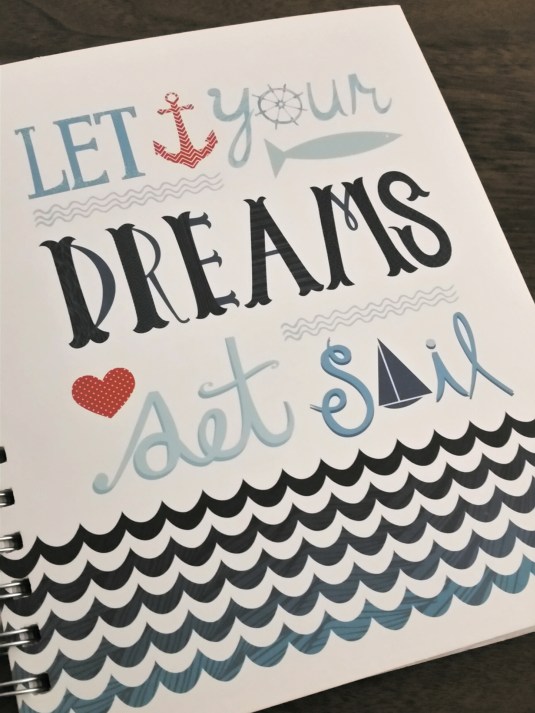 LET your
DREAMS
set Sail